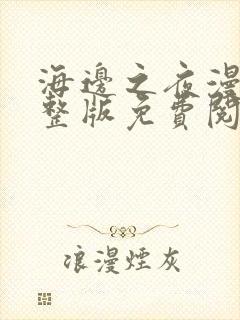 海邊之夜漫
整版免費閱
浪漫煙灰